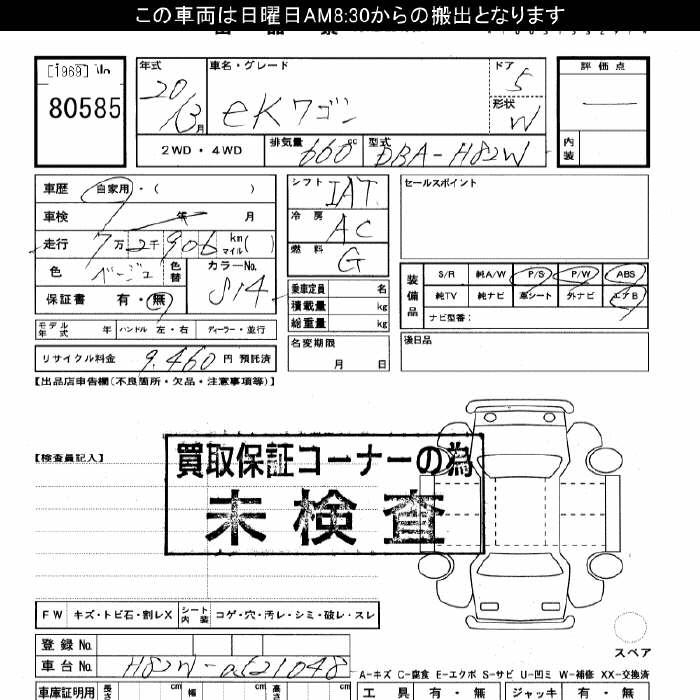 この車両は日曜日AM8:30からの搬出となります
[1969]
80585
年式
20/3月
車名・グレード
eKワゴン
ドア
5
形状
W
評価点
内装
2WD・4WD
排気量
660cc
型式
DBA-H82W
車歴 自家用・( )
車検 年 月
走行 7万2千906 km マイル( )
色 ベージュ
色替
カラーNo.
S14
保証書 有・無
モデル年式 年 ハンドル 左・右 ディーラー・並行
リサイクル料金 9,460 円 預託済
シフト
IAT
冷房
AC
燃料
G
乗車定員 名
積載量 kg
総重量 kg
名変期限
月 日
セールスポイント
装備品
S/R 純A/W P/S P/W ABS
純TV 純ナビ 革シート 外ナビ エアB
ナビ型番:
後日品
【出品店申告欄(不良箇所・欠品・注意事項等)】
【検査員記入】
買取保証コーナーの為
未検査
FW キズ・トビ石・割レX シート内装 コゲ・穴・汚レ・シミ・破レ・スレ
スペア
登録No.
車台No. H82W-
A-キズ C-腐食 E-エクボ S-サビ U-凹ミ W-補修 XX-交換済
車庫証明用 長さ cm 幅 cm 高さ cm
工具 有・無 ジャッキ 有・無